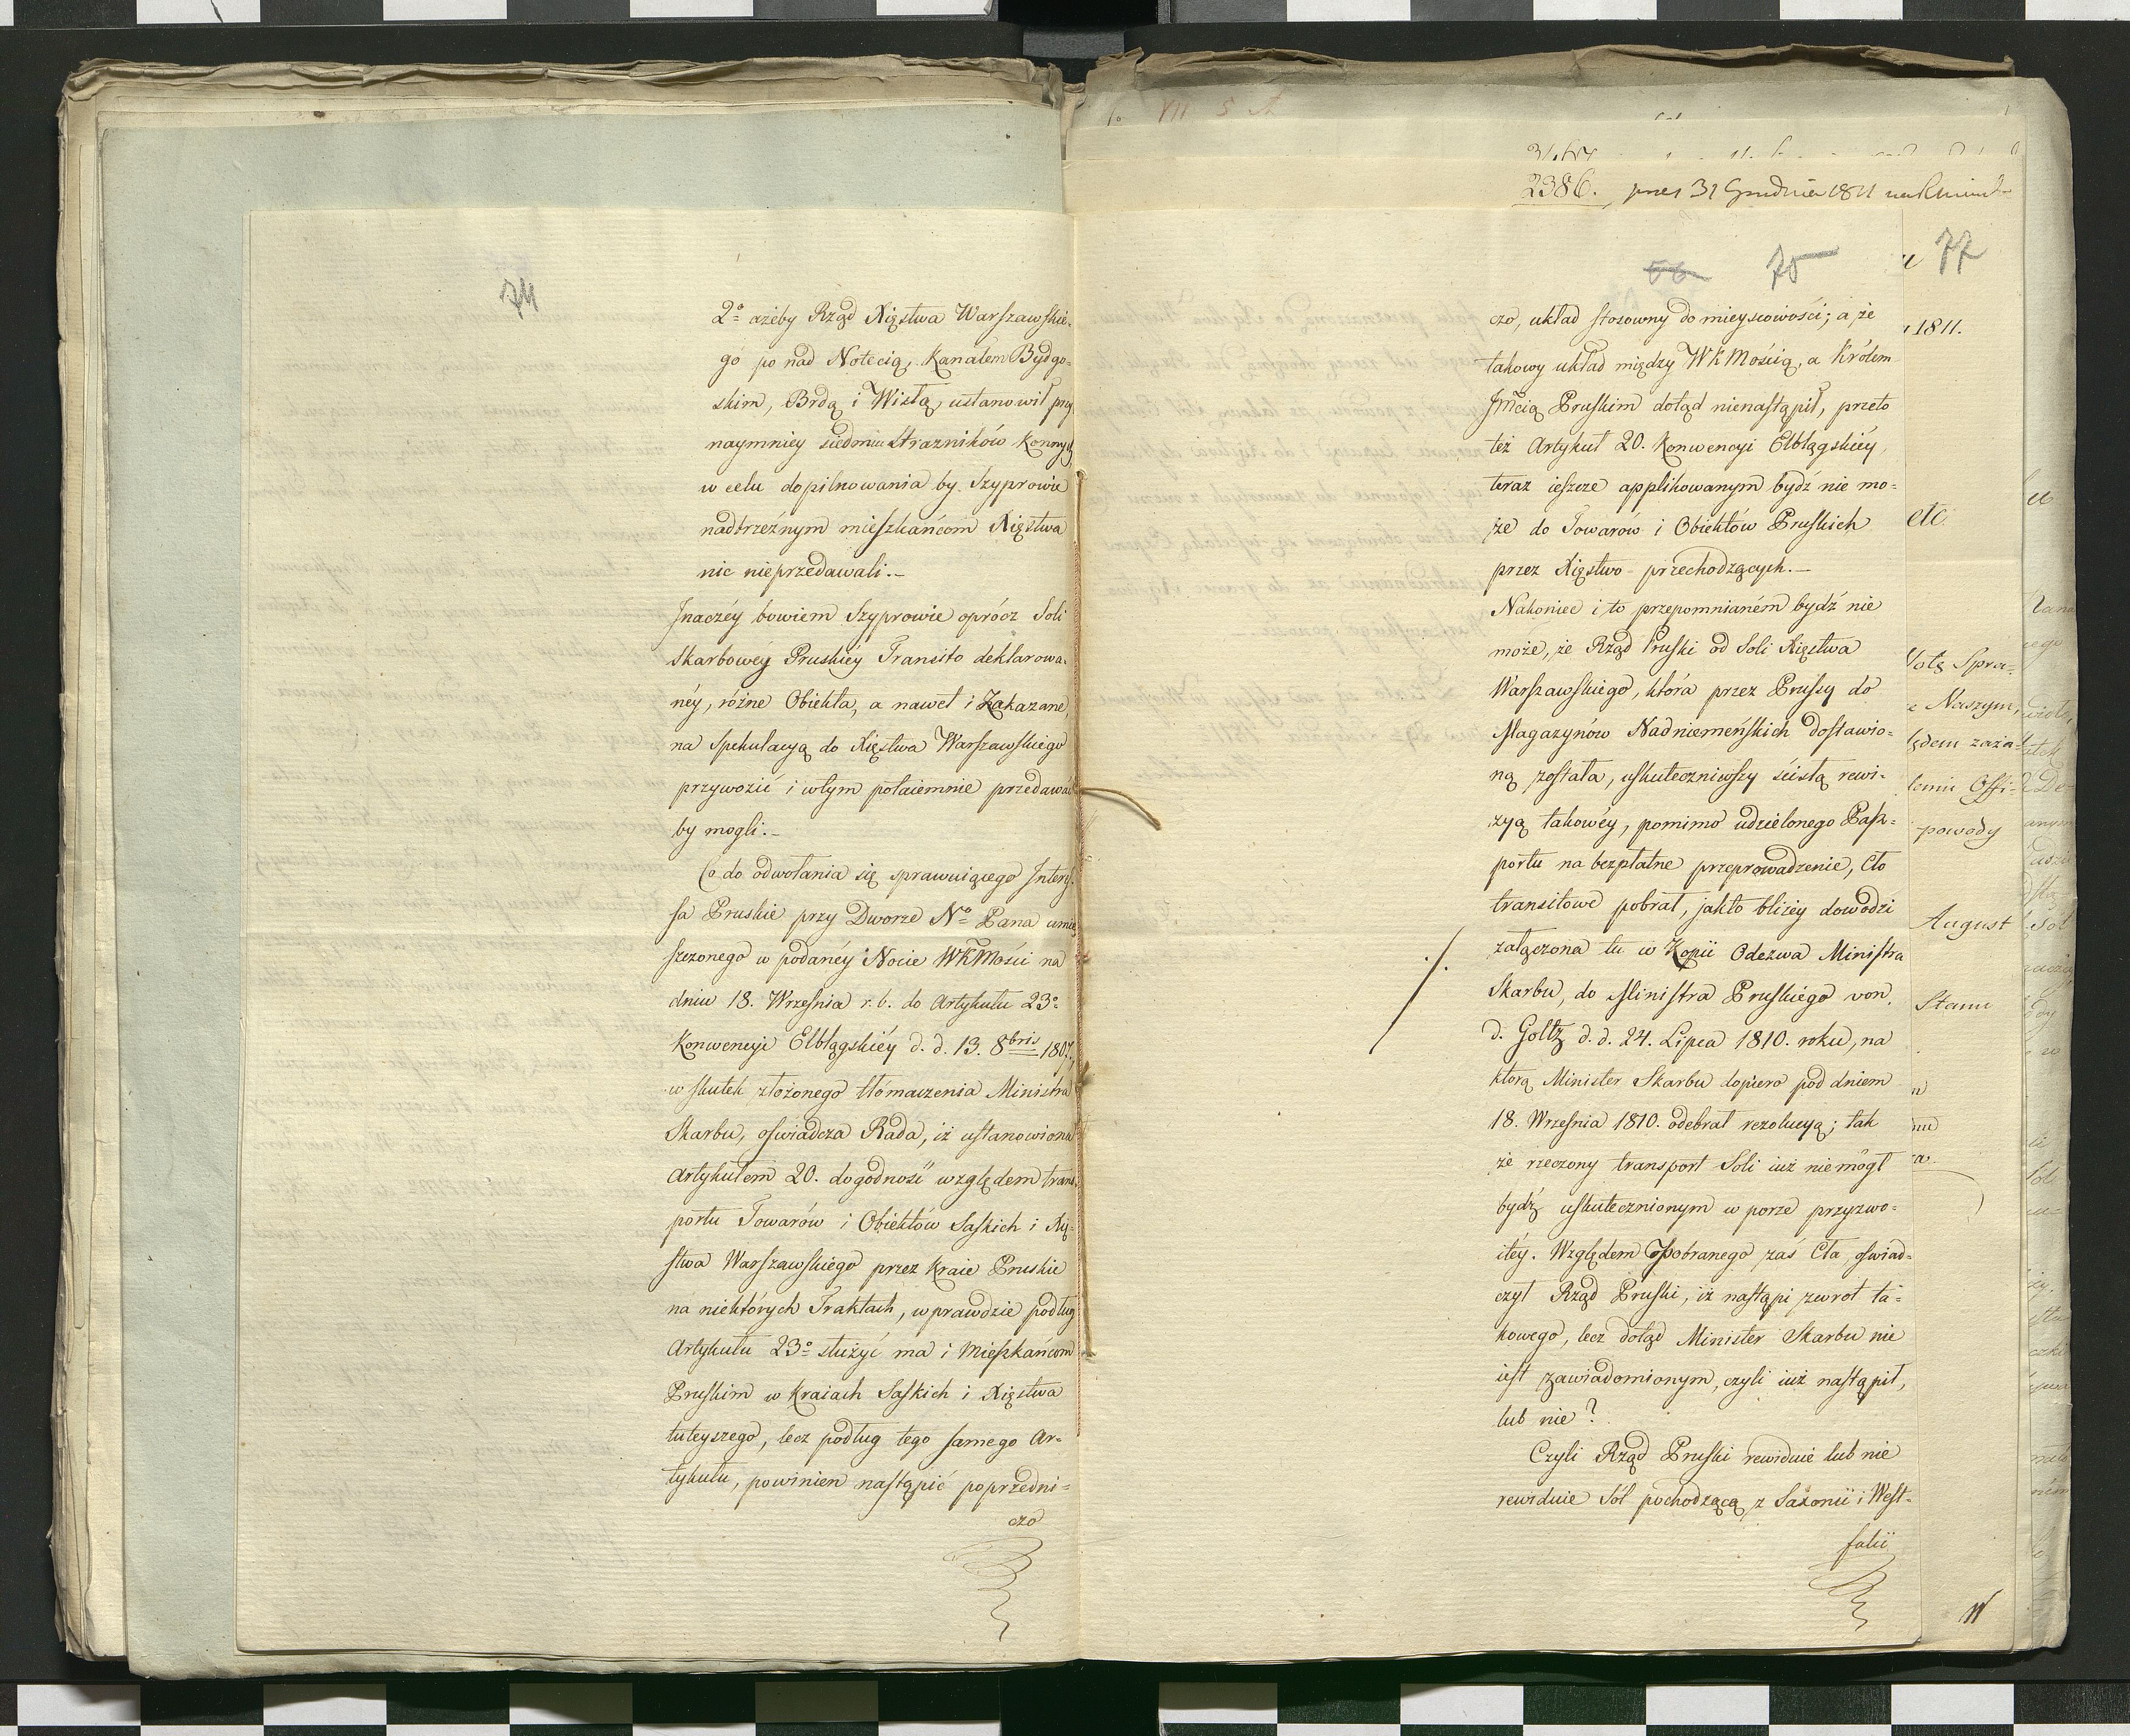 74
2º ażeby Rząd Xięstwa Warszawskie-
go po nad Notecią, Kanałem Bydgo-
skim, Brdą i Wisłą, ustanowił przy
naymniey siedmiu Strażników Konnych
w celu dopilnowania by Szyprowie
nadbrzeżnym mieszkańcom Xięstwa
nic nieprzedawali.–
Jnaczéy bowiem Szyprowie oprócz Soli
skarbowéy Pruskiéy Transito deklarowa-
néy, różne Obiekta, a nawet i Zakazane,
na spekulacyą do Xięstwa Warszawskiego
przywozić i wtym potaiemnie przedawać
by mogli.–
Co do odwołania się sprawuiącego Interes-
sa Pruskie przy Dworze Nº Pana umie-
szczonego w podanéy Nocie WKMości na
dniu 18. Września r. b. do Artykułu 23º
Konwencyi Elbłągskiéy d. d. 13. 8bris 1807,
w skutek złożonego tłómaczenia Ministra
Skarbu, oświadcza Rada, iż ustanowiona
Artykułem 20. dogodność względem trans-
portu Towarów i Obiektów Saskich i Xię-
stwa Warszawskiego przez Kraie Pruskie
na niektórych Traktach, wprawdzie podług
Artykułu 23º służyć ma i Mieszkańcom
Pruskim w Kraiach Saskich i Xięstwa
tuteyszego, lecz podług tego samego Ar-
tykułu, powinien nastąpić poprzedni-
czo
2386. przez 31 Grudnia 1811
56 75
czo, układ stosowny do mieyscowości; a że
takowy układ między WKMością, a Królem
Jmcią Pruskim dotąd nienastąpił, przeto
też Artykuł 20. Konwencyi Elbłągskiéy,
teraz ieszcze applikowanym bydź nie mo-
że do Towarów i Obiektów Pruskich
przez Xięstwo przechodzących.–
Nakoniec i to przepomnianém bydź nie
może, że Rząd Pruski od Soli Xięstwa
Warszawskiego, która przez Prussy do
Magazynów Nadniemeńskich dostawio-
ną została, uskuteczniwszy ścisłą rewi-
zyą takowéy, pomimo udzielonego Pass-
portu na bezpłatne przeprowadzenie, Cło
transitowe pobrał, jakto bliżey dowodzi
załączona tu w Kopii Odezwa Ministra
Skarbu, do Ministra Pruskiégo von
d. Goltz d. d. 24. Lipca 1810. roku, na
którą Minister Skarbu dopiero pod dniem
18. Września 1810. odebrał rezolucyą; tak
że rzeczony transport Soli iuż niemógł
bydź uskutecznionym w porze przyzwo-
itéy. Względem pobranego zaś Cła, oświad-
czył Rząd Pruski, iż nastąpi zwrot ta-
kowego, lecz dotąd Minister Skarbu nie
iest zawiadomionym, czyli iuż nastąpił,
lub nie?
Czyli Rząd Pruski rewiduie lub nie
rewiduie Sól pochodzącą z Saxonii i West-
falii
77
1811.
etc
Notę Spra-
Naszym,
zaża-
Offi-
powody
August
Stanu